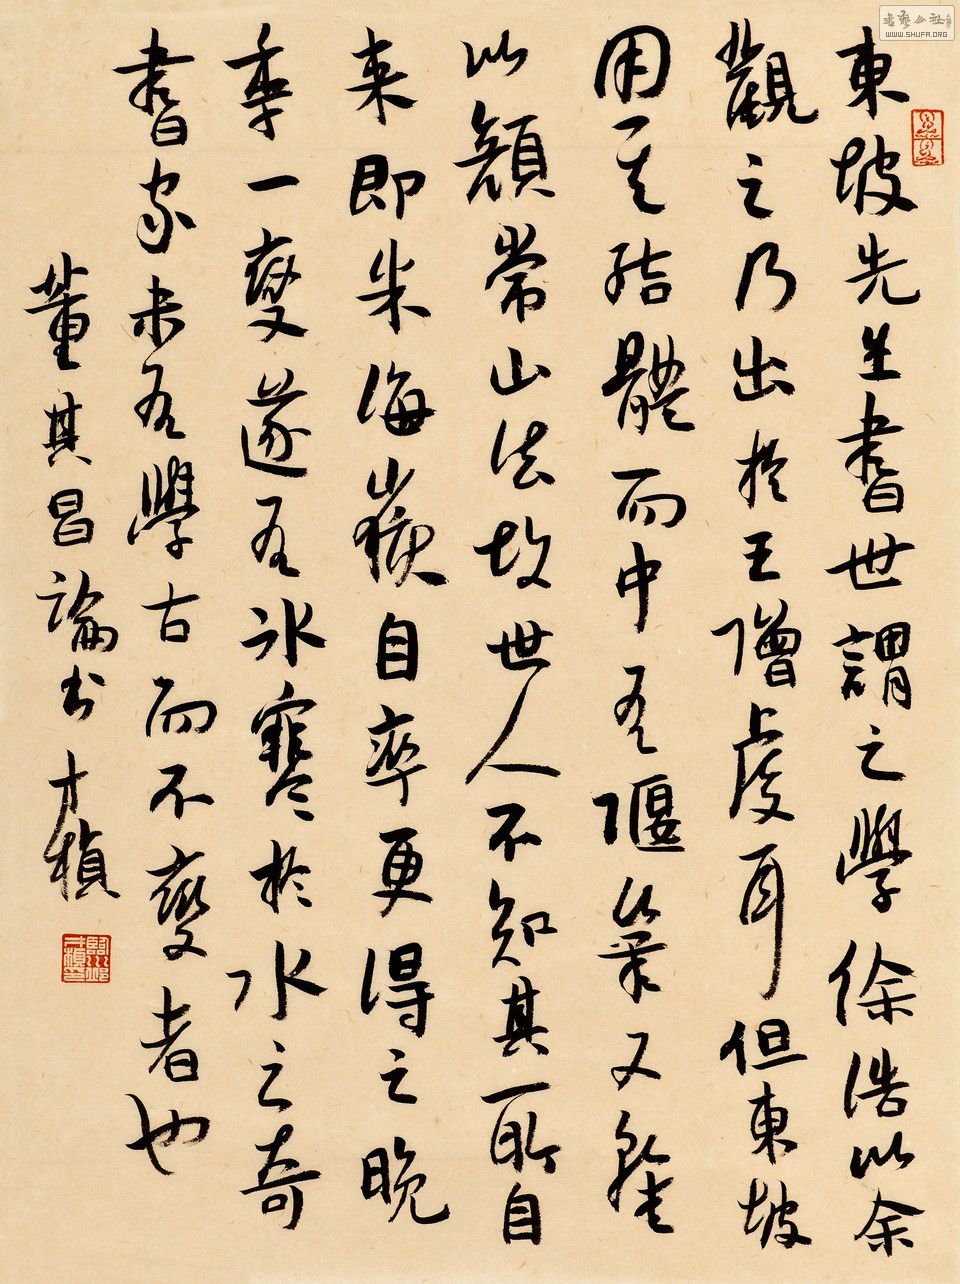 東坡先生書世謂之學徐浩以余
觀之乃出於王僧虔耳但東坡
用其結體而中有偃筆又雜
以顏常山法故世人不知其所自
来即米海嶽自率更得之晚
年一變遂有冰寒於水之奇
書家未有學古而不變者也
董其昌論书 才楨
書藝公社
WWW.SHUFA.ORG